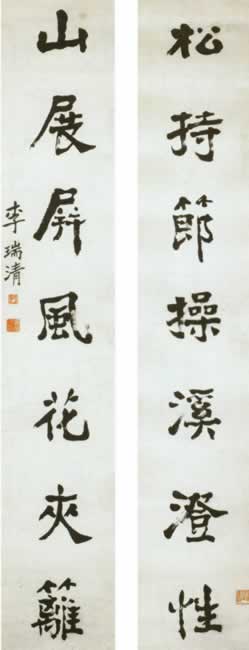 松持節操溪澄性
山展屏風花夾籬
李瑞清